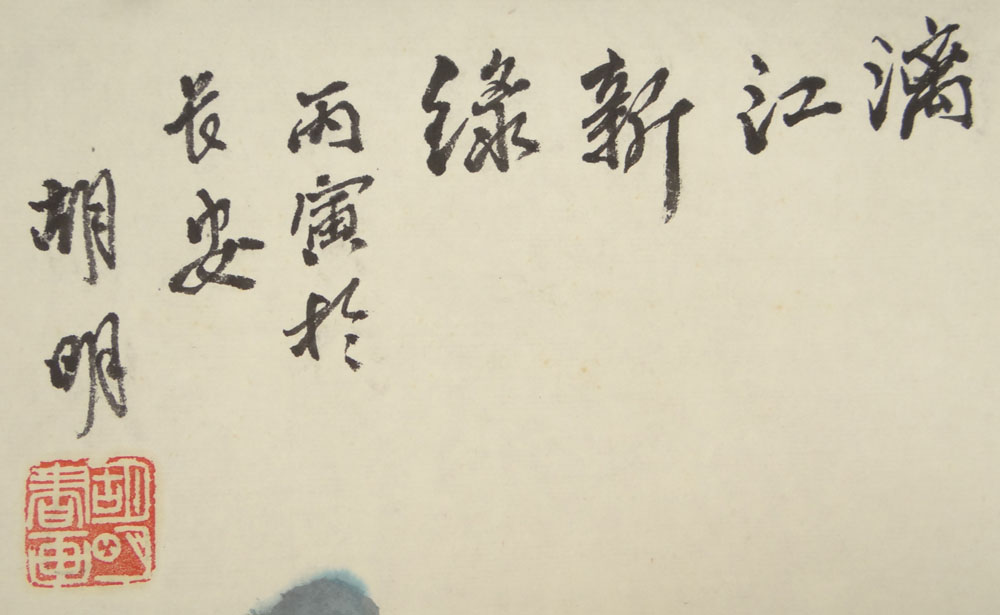 漓江新綠
丙寅於
長安
胡明
胡明書画